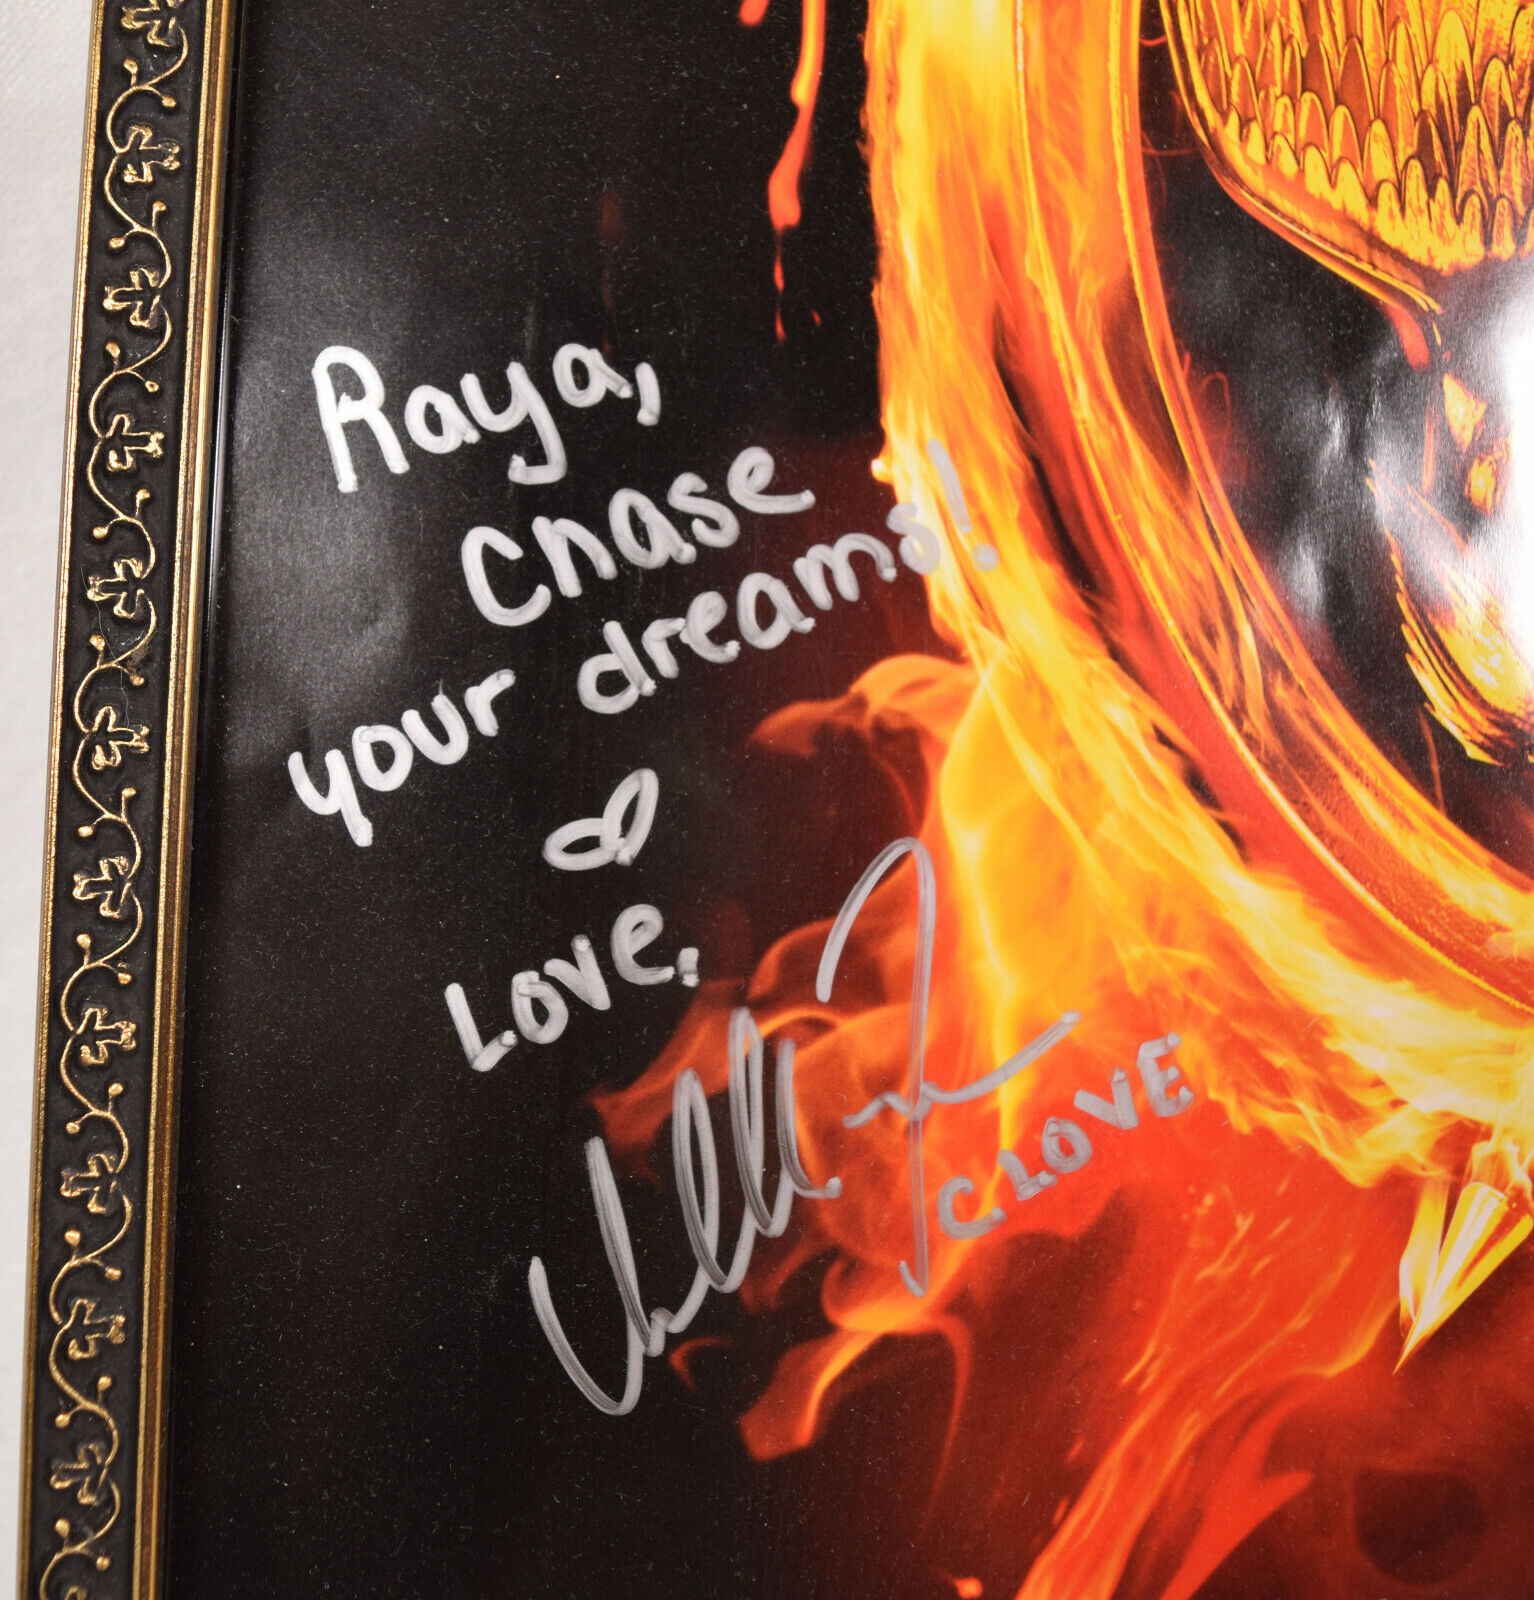 Raya,
Chase
your dreams!
Love,
CLOVE